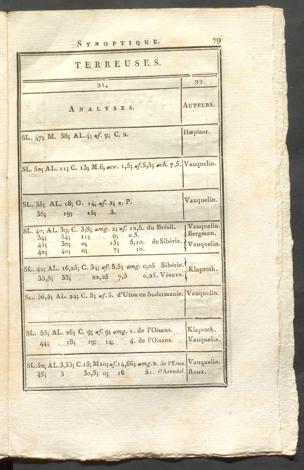 SYNOPTIQUE. 79
TERREUSES.
21. 22.
ANALYSES. AUTEURS.
SL. 47; M. 38; AL. 4; af. 9; C. 2. Hœpfner.
SL. 50; AL. 11; C. 13; M. 6; ace. 1,5; af. 5,5; ach. 7,5. Vauquelin.
SL. 35; AL. 18; G. 14, af. 2; e. P. Vauquelin.
36; 19; 15; 3.
SL. 40; AL. 39; C. 3,8; amg. 2; af. 12,5. du Brésil. Vauquelin.
34; 54; 11; 0; 0,5. Bergman.
45; 30; 0; 15; 5,10. de Sibérie. Vauquelin.
42; 40; 0; 7; 10.
SL. 42; AL. 16,25; C. 34; af. 5,5; amg. 0,25 Sibérie. Klaproth.
35,5; 33; 22,25 7,5 0,25. Vésuve.
SL. 56,5; AL. 24; C. 5; af. 5. d'Uton en Sudermanie. Vauquelin.
SL. 55; AL. 26; C. 9; af. 9; amg. 1. de l'Oisans. Klaproth.
44; 18; 19; 14; 4. de l'Oisans. Vauquelin.
SL. 52; AL. 3,33; C. 13; M. 10; af. 14,66; amg. 2. de l'Etna. Vauquelin.
45; 3 30,5; 0; 16 21. d'Arendal. Roux.